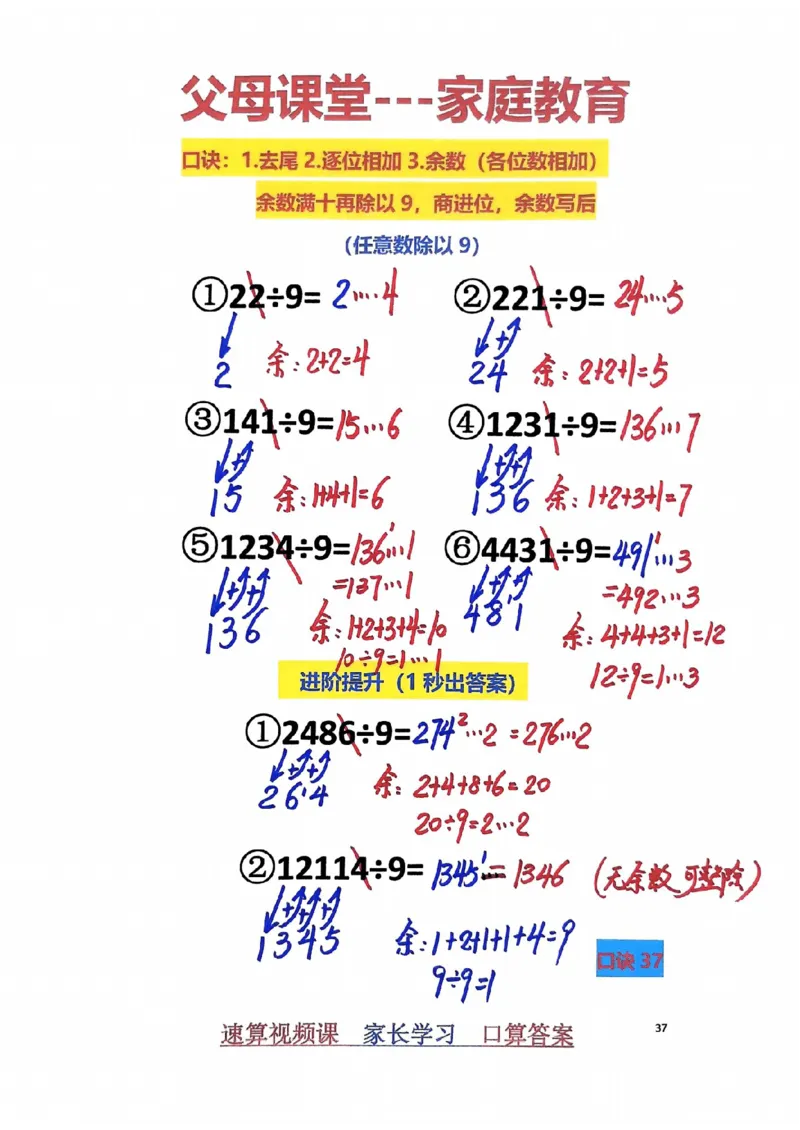 父母课堂---家庭教育
口诀：1.去尾 2.逐位相加 3.余数（各位数相加）
余数满十再除以 9，商进位，余数写后
（任意数除以 9）
①22÷9= 2…4
2 余：2+2=4
②221÷9= 24…5
24 余：2+2+1=5
③141÷9=15…6
15 余：1+4+1=6
④1231÷9=136…7
136 余：1+2+3+1=7
⑤1234÷9=136¹…1
=137…1
136 余：1+2+3+4=10
10÷9=1…1
⑥4431÷9=491¹…3
=492…3
48¹1 余：4+4+3+1=12
12÷9=1…3
进阶提升（1 秒出答案）
①2486÷9=274²…2 =276…2
26¹4 余：2+4+8+6=20
20÷9=2…2
②12114÷9= 1345¹= 1346 （无余数 可整除）
1345 余：1+2+1+1+4=9
9÷9=1
口诀 37
速算视频课 家长学习 口算答案
37